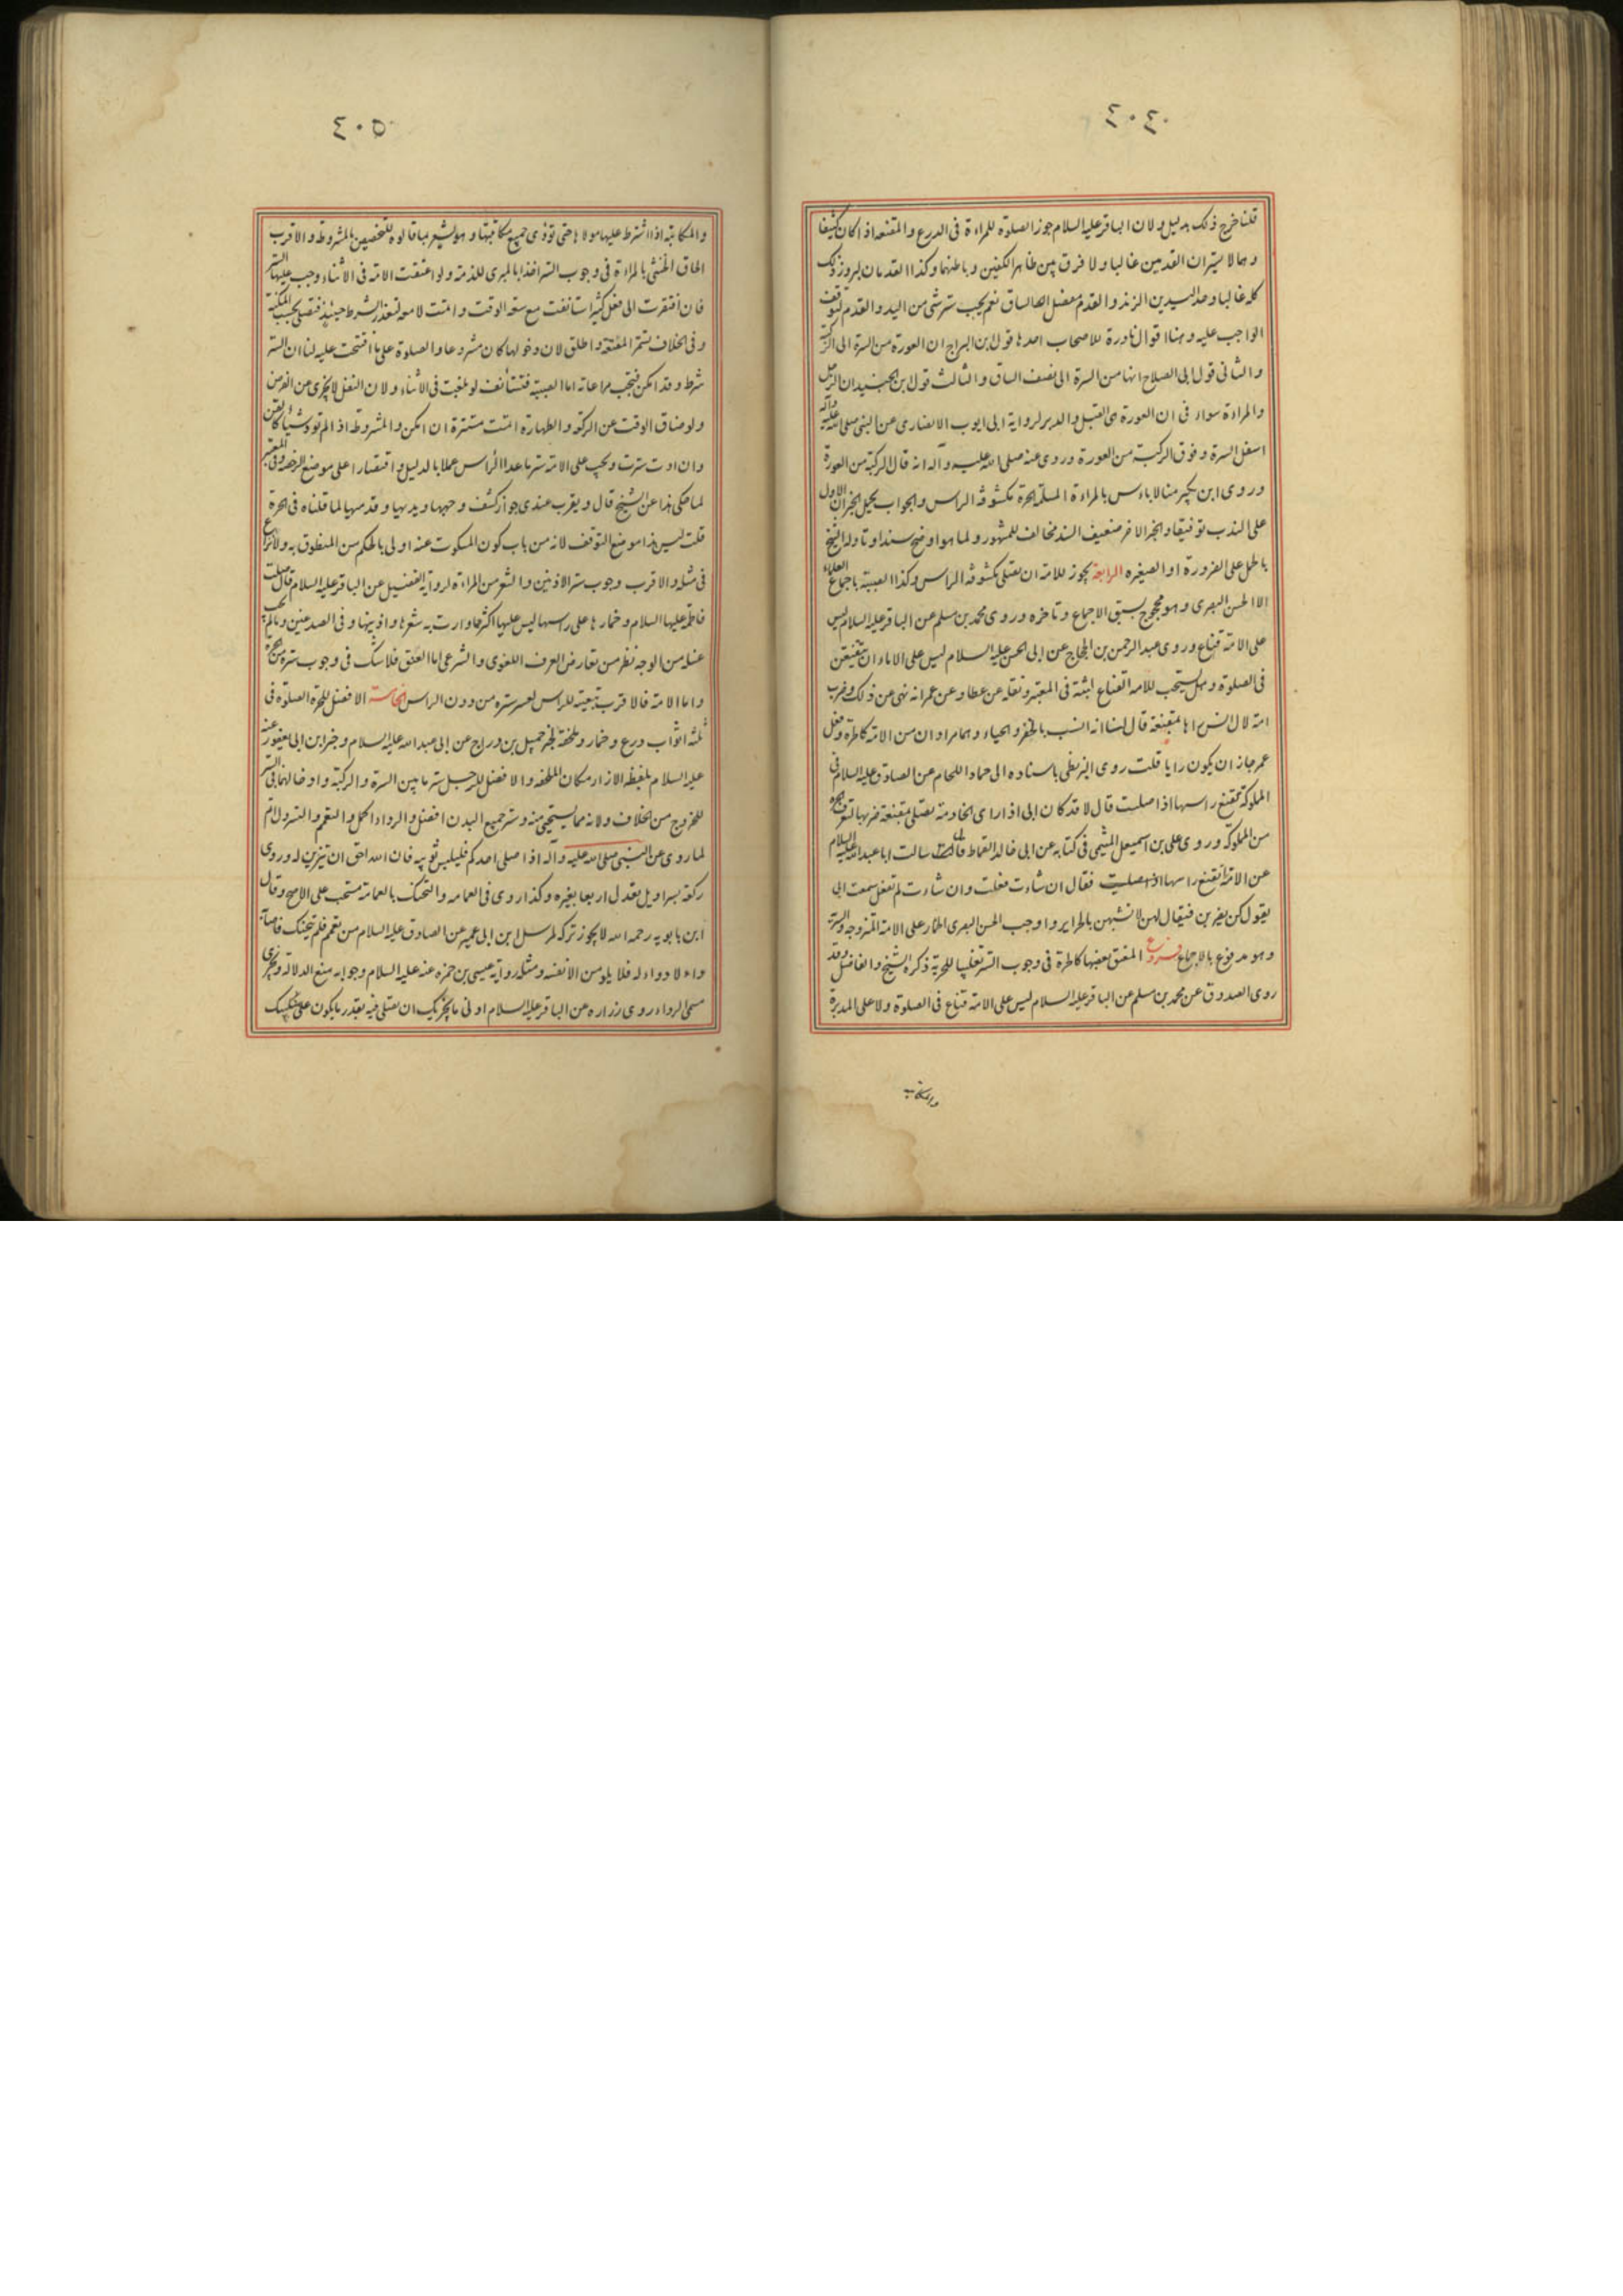 ٤٠٤
قلنا خرج ذلك بدليل ولان الباقر عليه السلام جوز الصلوة للمراة فى الدرع والمقنعه اذا كان كثيفا
وهما لا يستران القدمين غالبا ولا فرق بين ظاهر الكفين وباطنهما وكذا القدمان لبروز ذلك
كله غالبا وحد اليدين الزند والقدم مفصل الساق نعم يجب ستر شئ من اليد والقدم لتوقف
الواجب عليه وهنا اقوال نادرة للاصحاب احدها قول ابن البراج ان العورة من السرة الى الركبة
والثانى قول ابى الصلاح انها من السرة الى نصف الساق والثالث قول ابن الجنيد ان الرجل
والمراة سواء فى ان العورة هى القبل والدبر لرواية ابى ايوب الانصارى عن النبى صلى الله عليه وآله
اسفل السرة وفوق الركبة من العورة وروى عنه صلى الله عليه وآله انه قال الركبة من العورة
وروى ابن بكير منا لا باس بالمراة المسلمة الحرة مكشوفة الراس والجواب بحمل الخبر الاول
على الندب توفيقا والخبر الاخر ضعيف السند مخالف للمشهور ولما هو اوضح سندا وتاوله الشيخ
بالحمل على الضرورة او الصغيره الرابعة يجوز للامة ان تصلى مكشوفة الراس وكذا الصبية باجماع العلماء
الا الحسن البصرى وهو محجوج بسبق الاجماع وتاخره وروى محمد بن مسلم عن الباقر عليه السلام ليس
على الامة قناع وروى عبد الرحمن بن الحجاج عن ابى الحسن عليه السلام ليس على الاماء ان يتقنعن
فى الصلوة وهل يستحب للامة القناع اثبته فى المعتبر ونقله عن عطا وعن عمر انه نهى عن ذلك وضرب
امة لال انس راها مقنعة قال لنا انه انسب بالخفر والحياء وهما مرادان من الامة كالحرة وفعل
عمر جاز ان يكون رايا قلت روى البزنطى باسناده الى حماد اللحام عن الصادق عليه السلام فى
المملوكة تقنع راسها اذا صلت قال لا قد كان ابى اذا راى الخادمة تصلى بمقنعة ضربها لتعرف الحرة
من المملوكة وروى على بن اسمعيل الميثمى فى كتابه عن ابى خالد القماط قال سالت ابا عبد الله عليه السلام
عن الامة اتقنع راسها اذا صليت فقال ان شاءت فعلت وان شاءت لم تفعل سمعت ابى
يقول كن يضربن فيقال لهن لا تشبهن بالحراير واوجب الحسن البصرى الخمار على الامة المتزوجة والسرية
وهو مدفوع بالاجماع فروع المعتق بعضها كالحرة فى وجوب الستر تغليبا للحرية ذكره الشيخ والفاضل وقد
روى الصدوق عن محمد بن مسلم عن الباقر عليه السلام ليس على الامة قناع فى الصلوة ولا على المدبرة
والمكاتبة
٤٠٥
والمكاتبة اذا اشترط عليها مولاها حتى تؤدى جميع مكاتبتها وهو يشعر بما قالوه للتخصيص بالمشروطة والاقرب
الحاق الخنثى بالمراة فى وجوب الستر اخذا بالمبرى للذمة ولو اعتقت الامة فى الاثناء وجب عليها الستر
فان افتقرت الى فعل كثير استانفت مع سعة الوقت واتمت لا معه لتعذر الشرط حينئذ فتصلى بحسب المكنة
وفى الخلاف تستمر المعتقة واطلق لان دخولها كان مشروعا والصلوة على ما افتتحت عليه لنا ان الستر
شرط وقد امكن فتجب مراعاته اما الصبية فتستأنف لو بلغت فى الاثناء ولان النفل لا يجزى عن الفرض
ولو ضاق الوقت عن الركعة والطهارة اتمت مستترة ان امكن والمشروطة اذا لم تؤد شيئا كالقن
وان ادت سترت ويجب على الامة ستر ما عدا الراس عملا بالدليل واقتصارا على موضع الرخصة وفى المعتبر
لما حكى هذا عن الشيخ قال ويقرب عندى جواز كشف وجهها ويديها وقدميها لما قلناه فى الحرة
قلت ليس هذا موضع التوقف لانه من باب كون المسكوت عنه اولى بالحكم من المنطوق به ولا نزاع
فى مثله والاقرب وجوب ستر الاذنين والشعر من المراة لرواية الفضيل عن الباقر عليه السلام قال صلت
فاطمة عليها السلام وخمارها على راسها ليس عليها اكثر مما وارت به شعرها واذنيها وفى الصدغين وما لم يجب
غسله من الوجه نظر من تعارض العرف اللغوى والشرعى اما العنق فلا شك فى وجوب ستره من الحرة
واما الامة فالاقرب تبعيته للراس لعسر ستره من دون الراس الخامسة الافضل للحرة الصلوة فى
ثلثة اثواب درع وخمار وملحفة لخبر جميل بن دراج عن ابى عبد الله عليه السلام وخبر ابن ابى يعفور عنه
عليه السلام بلفظ الازار مكان الملحفه والافضل للرجل ستر ما بين السرة والركبة وادخالهما فى الستر
للخروج من الخلاف ولانه مما يستحيى منه وستر جميع البدن افضل والرداء اكمل والتعمم والتسرول اتم
لما روى عن النبى صلى الله عليه وآله اذا صلى احدكم فليلبس ثوبيه فان الله احق ان يتزين له وروى
ركعة بسراويل تعدل اربعا بغيره وكذا روى فى العمامه والتحنك بالعمامة مستحب على الاصح وقال
ابن بابويه رحمه الله لا يجوز تركه لمرسل ابن ابى عمير عن الصادق عليه السلام من تعمم فلم يتحنك فاصابه
داء لا دواء له فلا يلومن الا نفسه ومثله رواية عيسى بن حمزه عنه عليه السلام وجوابه منع الدلالة ويجزى
مسمى الرداء روى زراره عن الباقر عليه السلام ادنى ما يجزيك ان تصلى فيه بقدر ما يكون على منكبيك